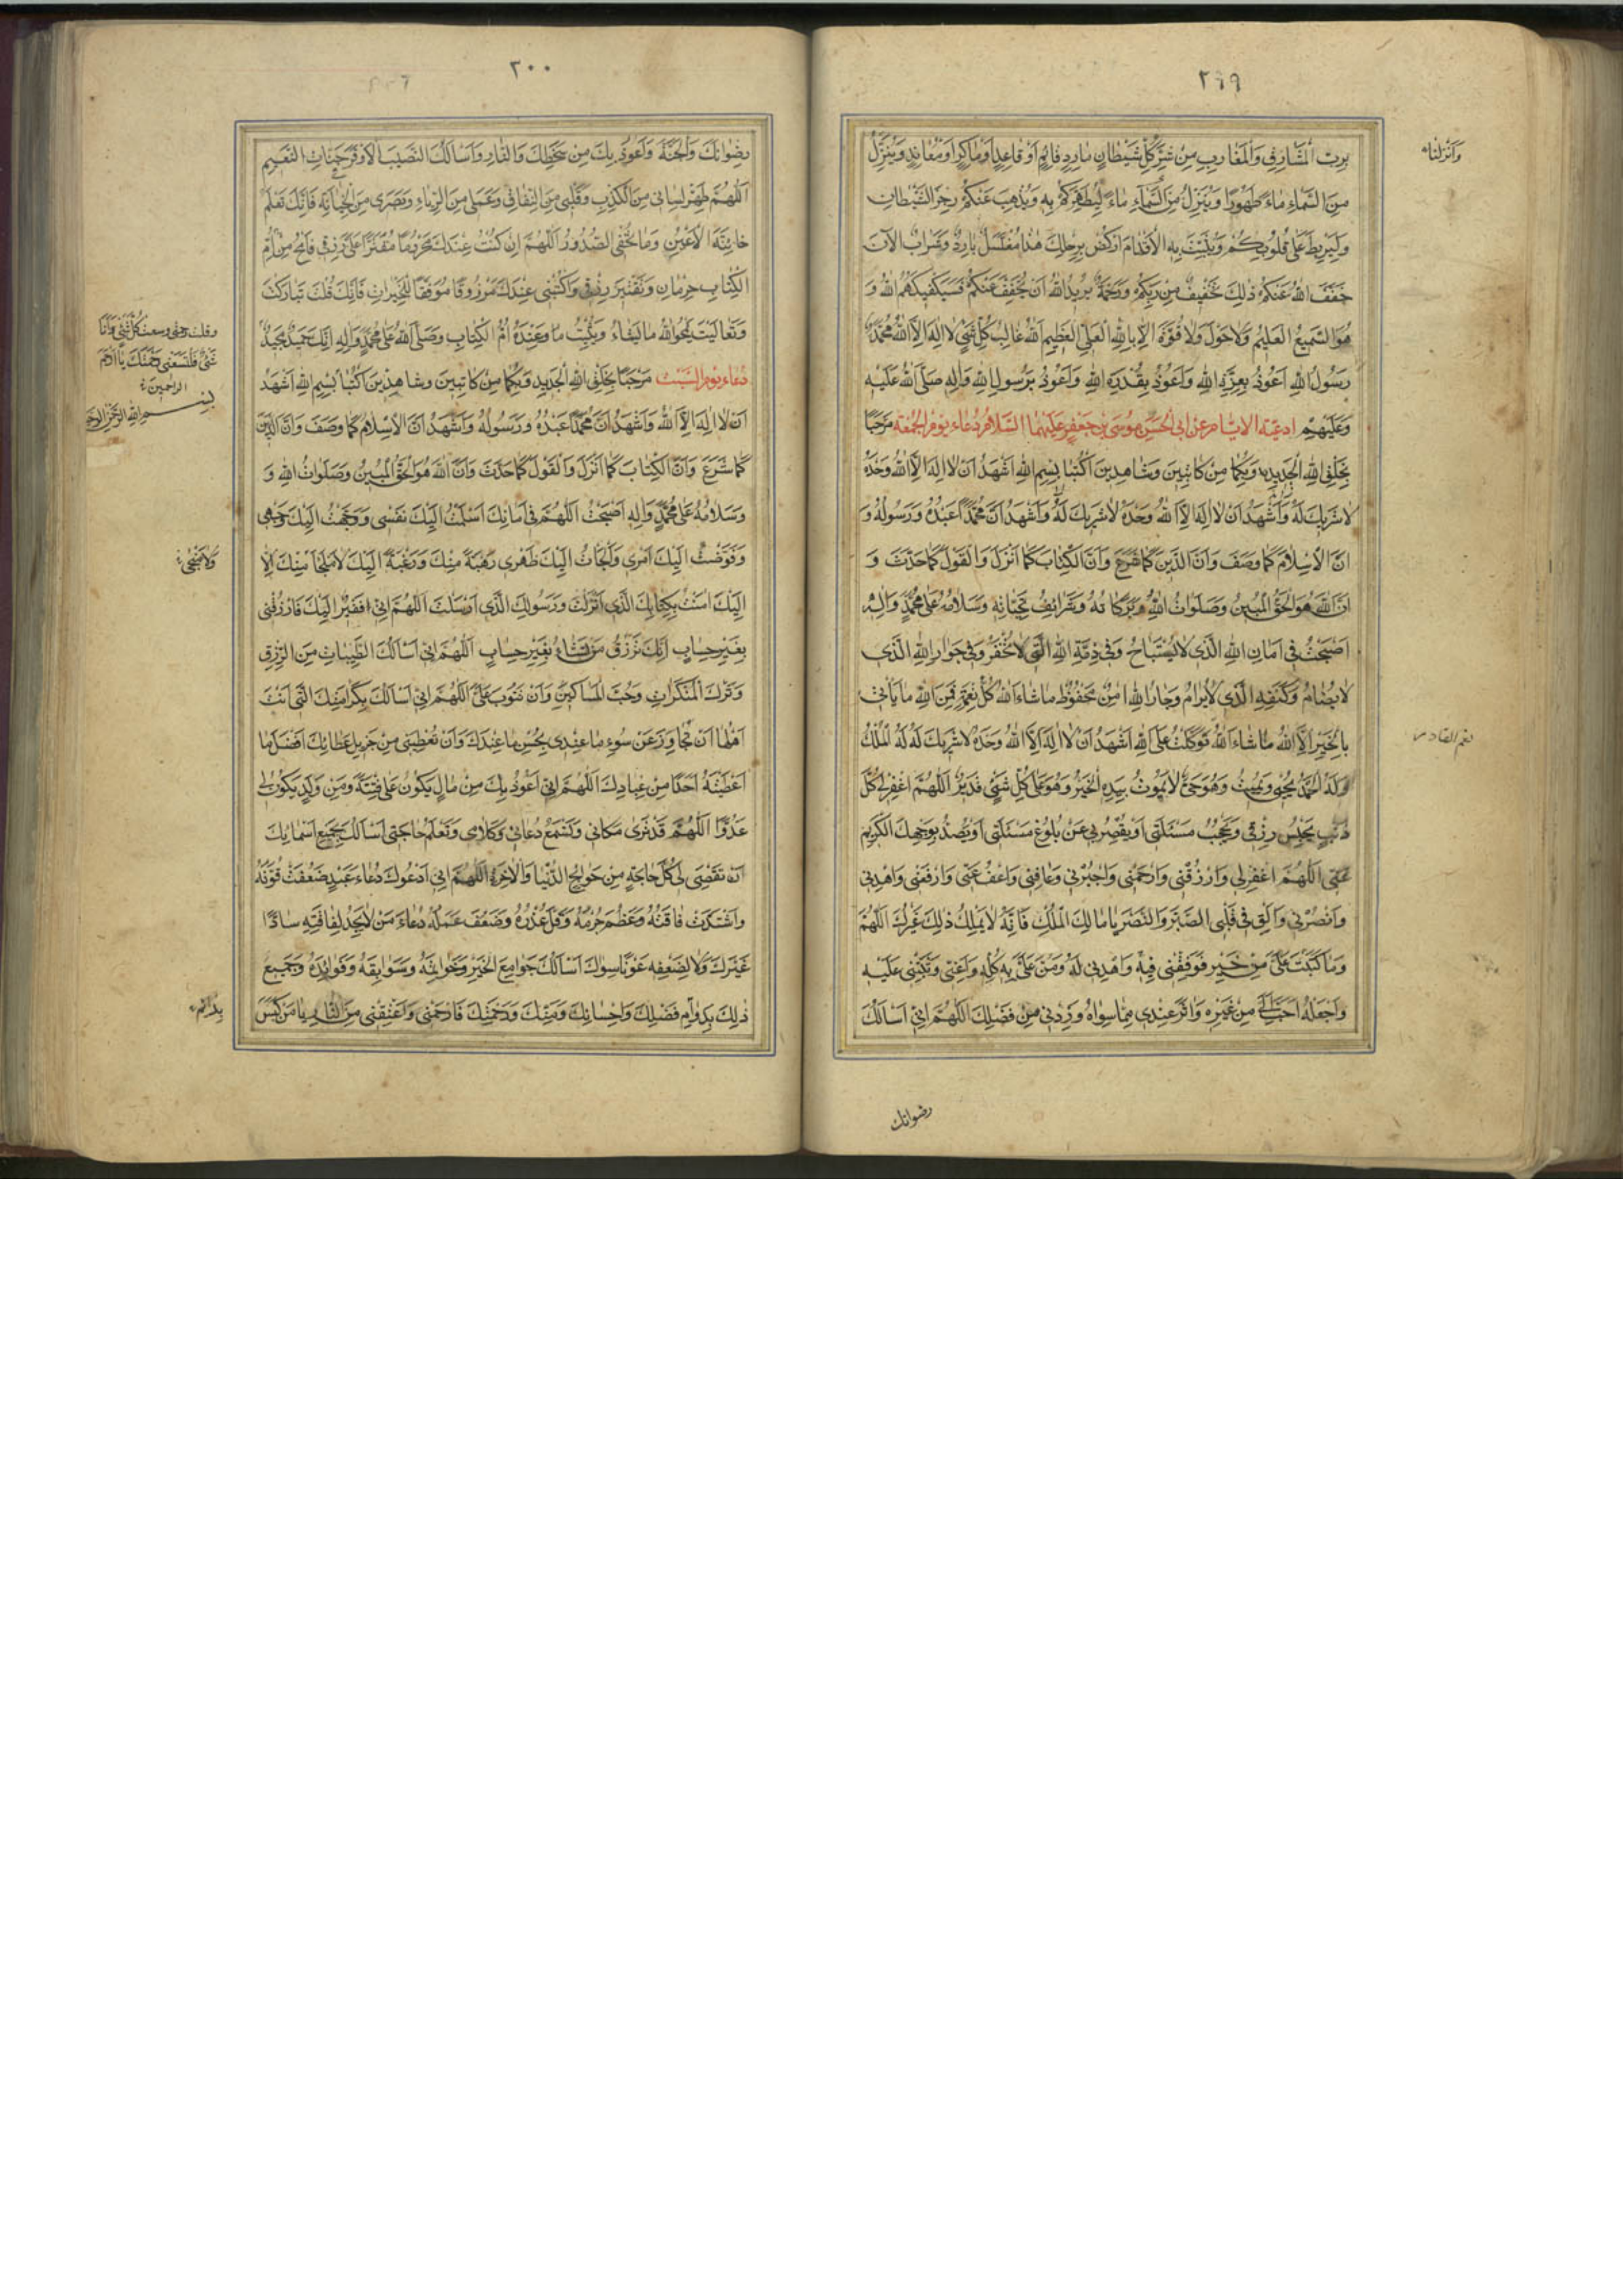 ٢٩٩
بِرَبِّ الْمَشَارِقِ وَالْمَغَارِبِ مِنْ شَرِّ كُلِّ شَيْطَانٍ مَارِدٍ قَائِمٍ أَوْ قَاعِدٍ أَوْ مَاكِرٍ أَوْ مُعَانِدٍ وَيُنَزِّلُ
وَأَنْزَلْنَا
مِنَ السَّمَاءِ مَاءً طَهُورًا وَيُنَزِّلُ مِنَ السَّمَاءِ مَاءً لِيُطَهِّرَكُمْ بِهِ وَيُذْهِبَ عَنْكُمْ رِجْزَ الشَّيْطَانِ
وَلِيَرْبِطَ عَلَى قُلُوبِكُمْ وَيُثَبِّتَ بِهِ الْأَقْدَامَ ارْكُضْ بِرِجْلِكَ هَذَا مُغْتَسَلٌ بَارِدٌ وَشَرَابٌ الْآنَ
خَفَّفَ اللَّهُ عَنْكُمْ ذَلِكَ تَخْفِيفٌ مِنْ رَبِّكُمْ وَرَحْمَةٌ يُرِيدُ اللَّهُ أَنْ يُخَفِّفَ عَنْكُمْ فَسَيَكْفِيكَهُمُ اللَّهُ وَ
هُوَ السَّمِيعُ الْعَلِيمُ وَلَا حَوْلَ وَلَا قُوَّةَ إِلَّا بِاللَّهِ الْعَلِيِّ الْعَظِيمِ اللَّهُ غَالِبُ كُلِّ شَيْءٍ لَا إِلَهَ إِلَّا اللَّهُ مُحَمَّدٌ
رَسُولُ اللَّهِ أَعُوذُ بِعِزَّةِ اللَّهِ وَأَعُوذُ بِقُدْرَةِ اللَّهِ وَأَعُوذُ بِرَسُولِ اللَّهِ وَآلِهِ صَلَّى اللَّهُ عَلَيْهِ
وَعَلَيْهِمْ ادعية الايام عن ابى الحسن موسى بن جعفر عليهما السلام دعاء يوم الجمعة مَرْحَبًا
بِخَلْقِ اللَّهِ الْجَدِيدِ وَبِكُمَا مِنْ كَاتِبَيْنِ وَشَاهِدَيْنِ اكْتُبَا بِسْمِ اللَّهِ أَشْهَدُ أَنْ لَا إِلَهَ إِلَّا اللَّهُ وَحْدَهُ
لَا شَرِيكَ لَهُ وَأَشْهَدُ أَنْ لَا إِلَهَ إِلَّا اللَّهُ وَحْدَهُ لَا شَرِيكَ لَهُ وَأَشْهَدُ أَنَّ مُحَمَّدًا عَبْدُهُ وَرَسُولُهُ وَ
أَنَّ الْإِسْلَامَ كَمَا وَصَفَ وَأَنَّ الدِّينَ كَمَا شَرَعَ وَأَنَّ الْكِتَابَ كَمَا أَنْزَلَ وَالْقَوْلَ كَمَا حَدَّثَ وَ
أَنَّ اللَّهَ هُوَ الْحَقُّ الْمُبِينُ وَصَلَوَاتُ اللَّهِ وَبَرَكَاتُهُ وَشَرَائِفُ تَحِيَّاتِهِ وَسَلَامُهُ عَلَى مُحَمَّدٍ وَآلِهِ
أَصْبَحْتُ فِي أَمَانِ اللَّهِ الَّذِي لَا يُسْتَبَاحُ وَفِي ذِمَّةِ اللَّهِ الَّتِي لَا تُخْفَرُ وَفِي جِوَارِ اللَّهِ الَّذِي
لَا يُضَامُ وَكَنَفِهِ الَّذِي لَا يُرَامُ وَجَارُ اللَّهِ آمِنٌ مَحْفُوظٌ مَا شَاءَ اللَّهُ كُلُّ نِعْمَةٍ فَمِنَ اللَّهِ مَا يَأْتِي
بِالْخَيْرِ إِلَّا اللَّهُ مَا شَاءَ اللَّهُ تَوَكَّلْتُ عَلَى اللَّهِ أَشْهَدُ أَنْ لَا إِلَهَ إِلَّا اللَّهُ وَحْدَهُ لَا شَرِيكَ لَهُ لَهُ الْمُلْكُ
نعم القادر
وَلَهُ الْحَمْدُ يُحْيِي وَيُمِيتُ وَهُوَ حَيٌّ لَا يَمُوتُ بِيَدِهِ الْخَيْرُ وَهُوَ عَلَى كُلِّ شَيْءٍ قَدِيرٌ اللَّهُمَّ اغْفِرْ لِي كُلَّ
ذَنْبٍ يَحْبِسُ رِزْقِي وَيَحْجُبُ مَسْئَلَتِي أَوْ يُقَصِّرُ بِي عَنْ بُلُوغِ مَسْئَلَتِي أَوْ يَصُدُّ بِوَجْهِكَ الْكَرِيمِ
عَنِّي اللَّهُمَّ اغْفِرْ لِي وَارْزُقْنِي وَارْحَمْنِي وَاجْبُرْنِي وَعَافِنِي وَاعْفُ عَنِّي وَارْفَعْنِي وَاهْدِنِي
وَانْصُرْنِي وَأَلْقِ فِي قَلْبِي الصَّبْرَ وَالنَّصْرَ يَا مَالِكَ الْمُلْكِ فَإِنَّهُ لَا يَمْلِكُ ذَلِكَ غَيْرُكَ اللَّهُمَّ
وَمَا كَتَبْتَ عَلَيَّ مِنْ خَيْرٍ فَوَفِّقْنِي فِيهِ وَاهْدِنِي لَهُ وَمُنَّ عَلَيَّ بِهِ كُلِّهِ وَأَعِنِّي وَثَبِّتْنِي عَلَيْهِ
وَاجْعَلْهُ أَحَبَّ إِلَيَّ مِنْ غَيْرِهِ وَآثَرَ عِنْدِي مِمَّا سِوَاهُ وَزِدْنِي مِنْ فَضْلِكَ اللَّهُمَّ إِنِّي أَسْأَلُكَ
رضوانك
٣٠٠
رِضْوَانَكَ وَالْجَنَّةَ وَأَعُوذُ بِكَ مِنْ سَخَطِكَ وَالنَّارِ وَأَسْأَلُكَ النَّصِيبَ الْأَوْفَرَ فِي جَنَّاتِ النَّعِيمِ
اللَّهُمَّ طَهِّرْ لِسَانِي مِنَ الْكَذِبِ وَقَلْبِي مِنَ النِّفَاقِ وَعَمَلِي مِنَ الرِّيَاءِ وَبَصَرِي مِنَ الْخِيَانَةِ فَإِنَّكَ تَعْلَمُ
خَائِنَةَ الْأَعْيُنِ وَمَا تُخْفِي الصُّدُورُ اللَّهُمَّ إِنْ كُنْتُ عِنْدَكَ مَحْرُومًا مُقَتَّرًا عَلَيَّ رِزْقِي فَامْحُ مِنْ أُمِّ
الْكِتَابِ حِرْمَانِي وَتَقْتِيرَ رِزْقِي وَاكْتُبْنِي عِنْدَكَ مَرْزُوقًا مُوَفَّقًا لِلْخَيْرَاتِ فَإِنَّكَ قُلْتَ تَبَارَكْتَ
وَتَعَالَيْتَ يَمْحُو اللَّهُ مَا يَشَاءُ وَيُثْبِتُ وَعِنْدَهُ أُمُّ الْكِتَابِ وَصَلَّى اللَّهُ عَلَى مُحَمَّدٍ وَآلِهِ إِنَّكَ حَمِيدٌ مَجِيدٌ
وقلت رحمتى وسعت كل شىء وانا
شىء فلتسعنى رحمتك يا ارحم
الراحمين
بسم الله الرحمن الرحيم
دعاء يوم السبت مَرْحَبًا بِخَلْقِ اللَّهِ الْجَدِيدِ وَبِكُمَا مِنْ كَاتِبَيْنِ وَشَاهِدَيْنِ اكْتُبَا بِسْمِ اللَّهِ أَشْهَدُ
أَنْ لَا إِلَهَ إِلَّا اللَّهُ وَأَشْهَدُ أَنَّ مُحَمَّدًا عَبْدُهُ وَرَسُولُهُ وَأَشْهَدُ أَنَّ الْإِسْلَامَ كَمَا وَصَفَ وَأَنَّ الدِّينَ
كَمَا شَرَعَ وَأَنَّ الْكِتَابَ كَمَا أَنْزَلَ وَالْقَوْلَ كَمَا حَدَّثَ وَأَنَّ اللَّهَ هُوَ الْحَقُّ الْمُبِينُ وَصَلَوَاتُ اللَّهِ وَ
وَسَلَامُهُ عَلَى مُحَمَّدٍ وَآلِهِ أَصْبَحْتُ اللَّهُمَّ فِي أَمَانِكَ أَسْلَمْتُ إِلَيْكَ نَفْسِي وَوَجَّهْتُ إِلَيْكَ وَجْهِي
وَفَوَّضْتُ إِلَيْكَ أَمْرِي وَأَلْجَأْتُ إِلَيْكَ ظَهْرِي رَهْبَةً مِنْكَ وَرَغْبَةً إِلَيْكَ لَا مَلْجَأَ مِنْكَ إِلَّا
وَلَا مَنْجَى
إِلَيْكَ آمَنْتُ بِكِتَابِكَ الَّذِي أَنْزَلْتَ وَرَسُولِكَ الَّذِي أَرْسَلْتَ اللَّهُمَّ إِنِّي فَقِيرٌ إِلَيْكَ فَارْزُقْنِي
بِغَيْرِ حِسَابٍ إِنَّكَ تَرْزُقُ مَنْ تَشَاءُ بِغَيْرِ حِسَابٍ اللَّهُمَّ إِنِّي أَسْأَلُكَ الطَّيِّبَاتِ مِنَ الرِّزْقِ
وَتَرْكَ الْمُنْكَرَاتِ وَحُبَّ الْمَسَاكِينِ وَأَنْ تَتُوبَ عَلَيَّ اللَّهُمَّ إِنِّي أَسْأَلُكَ بِكَرَامَتِكَ الَّتِي أَنْتَ
أَهْلُهَا أَنْ تَجَاوَزَ عَنْ سُوءِ مَا عِنْدِي بِحُسْنِ مَا عِنْدَكَ وَأَنْ تُعْطِيَنِي مِنْ جَزِيلِ عَطَائِكَ أَفْضَلَ مَا
أَعْطَيْتَهُ أَحَدًا مِنْ عِبَادِكَ اللَّهُمَّ إِنِّي أَعُوذُ بِكَ مِنْ مَالٍ يَكُونُ عَلَيَّ فِتْنَةً وَمِنْ وَلَدٍ يَكُونُ لِي
عَدُوًّا اللَّهُمَّ قَدْ تَرَى مَكَانِي وَتَسْمَعُ دُعَائِي وَكَلَامِي وَتَعْلَمُ حَاجَتِي أَسْأَلُكَ بِجَمِيعِ أَسْمَائِكَ
أَنْ تَقْضِيَ لِي كُلَّ حَاجَةٍ مِنْ حَوَائِجِ الدُّنْيَا وَالْآخِرَةِ اللَّهُمَّ إِنِّي أَدْعُوكَ دُعَاءَ عَبْدٍ ضَعُفَتْ قُوَّتُهُ
وَاشْتَدَّتْ فَاقَتُهُ وَعَظُمَ جُرْمُهُ وَقَلَّ عُذْرُهُ وَضَعُفَ عَمَلُهُ دُعَاءَ مَنْ لَا يَجِدُ لِفَاقَتِهِ سَادًّا
غَيْرَكَ وَلَا لِضَعْفِهِ عَوْنًا سِوَاكَ أَسْأَلُكَ جَوَامِعَ الْخَيْرِ وَخَوَاتِمَهُ وَسَوَابِقَهُ وَفَوَائِدَهُ وَجَمِيعَ
ذَلِكَ بِدَوَامِ فَضْلِكَ وَإِحْسَانِكَ وَمَنِّكَ وَرَحْمَتِكَ فَارْحَمْنِي وَأَعْتِقْنِي مِنَ النَّارِ يَا مَنْ كَبَسَ